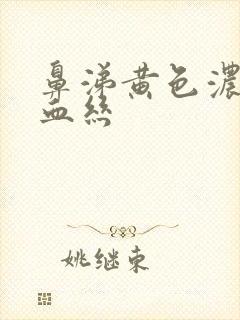 鼻涕黄色濃
血絲
姚继東